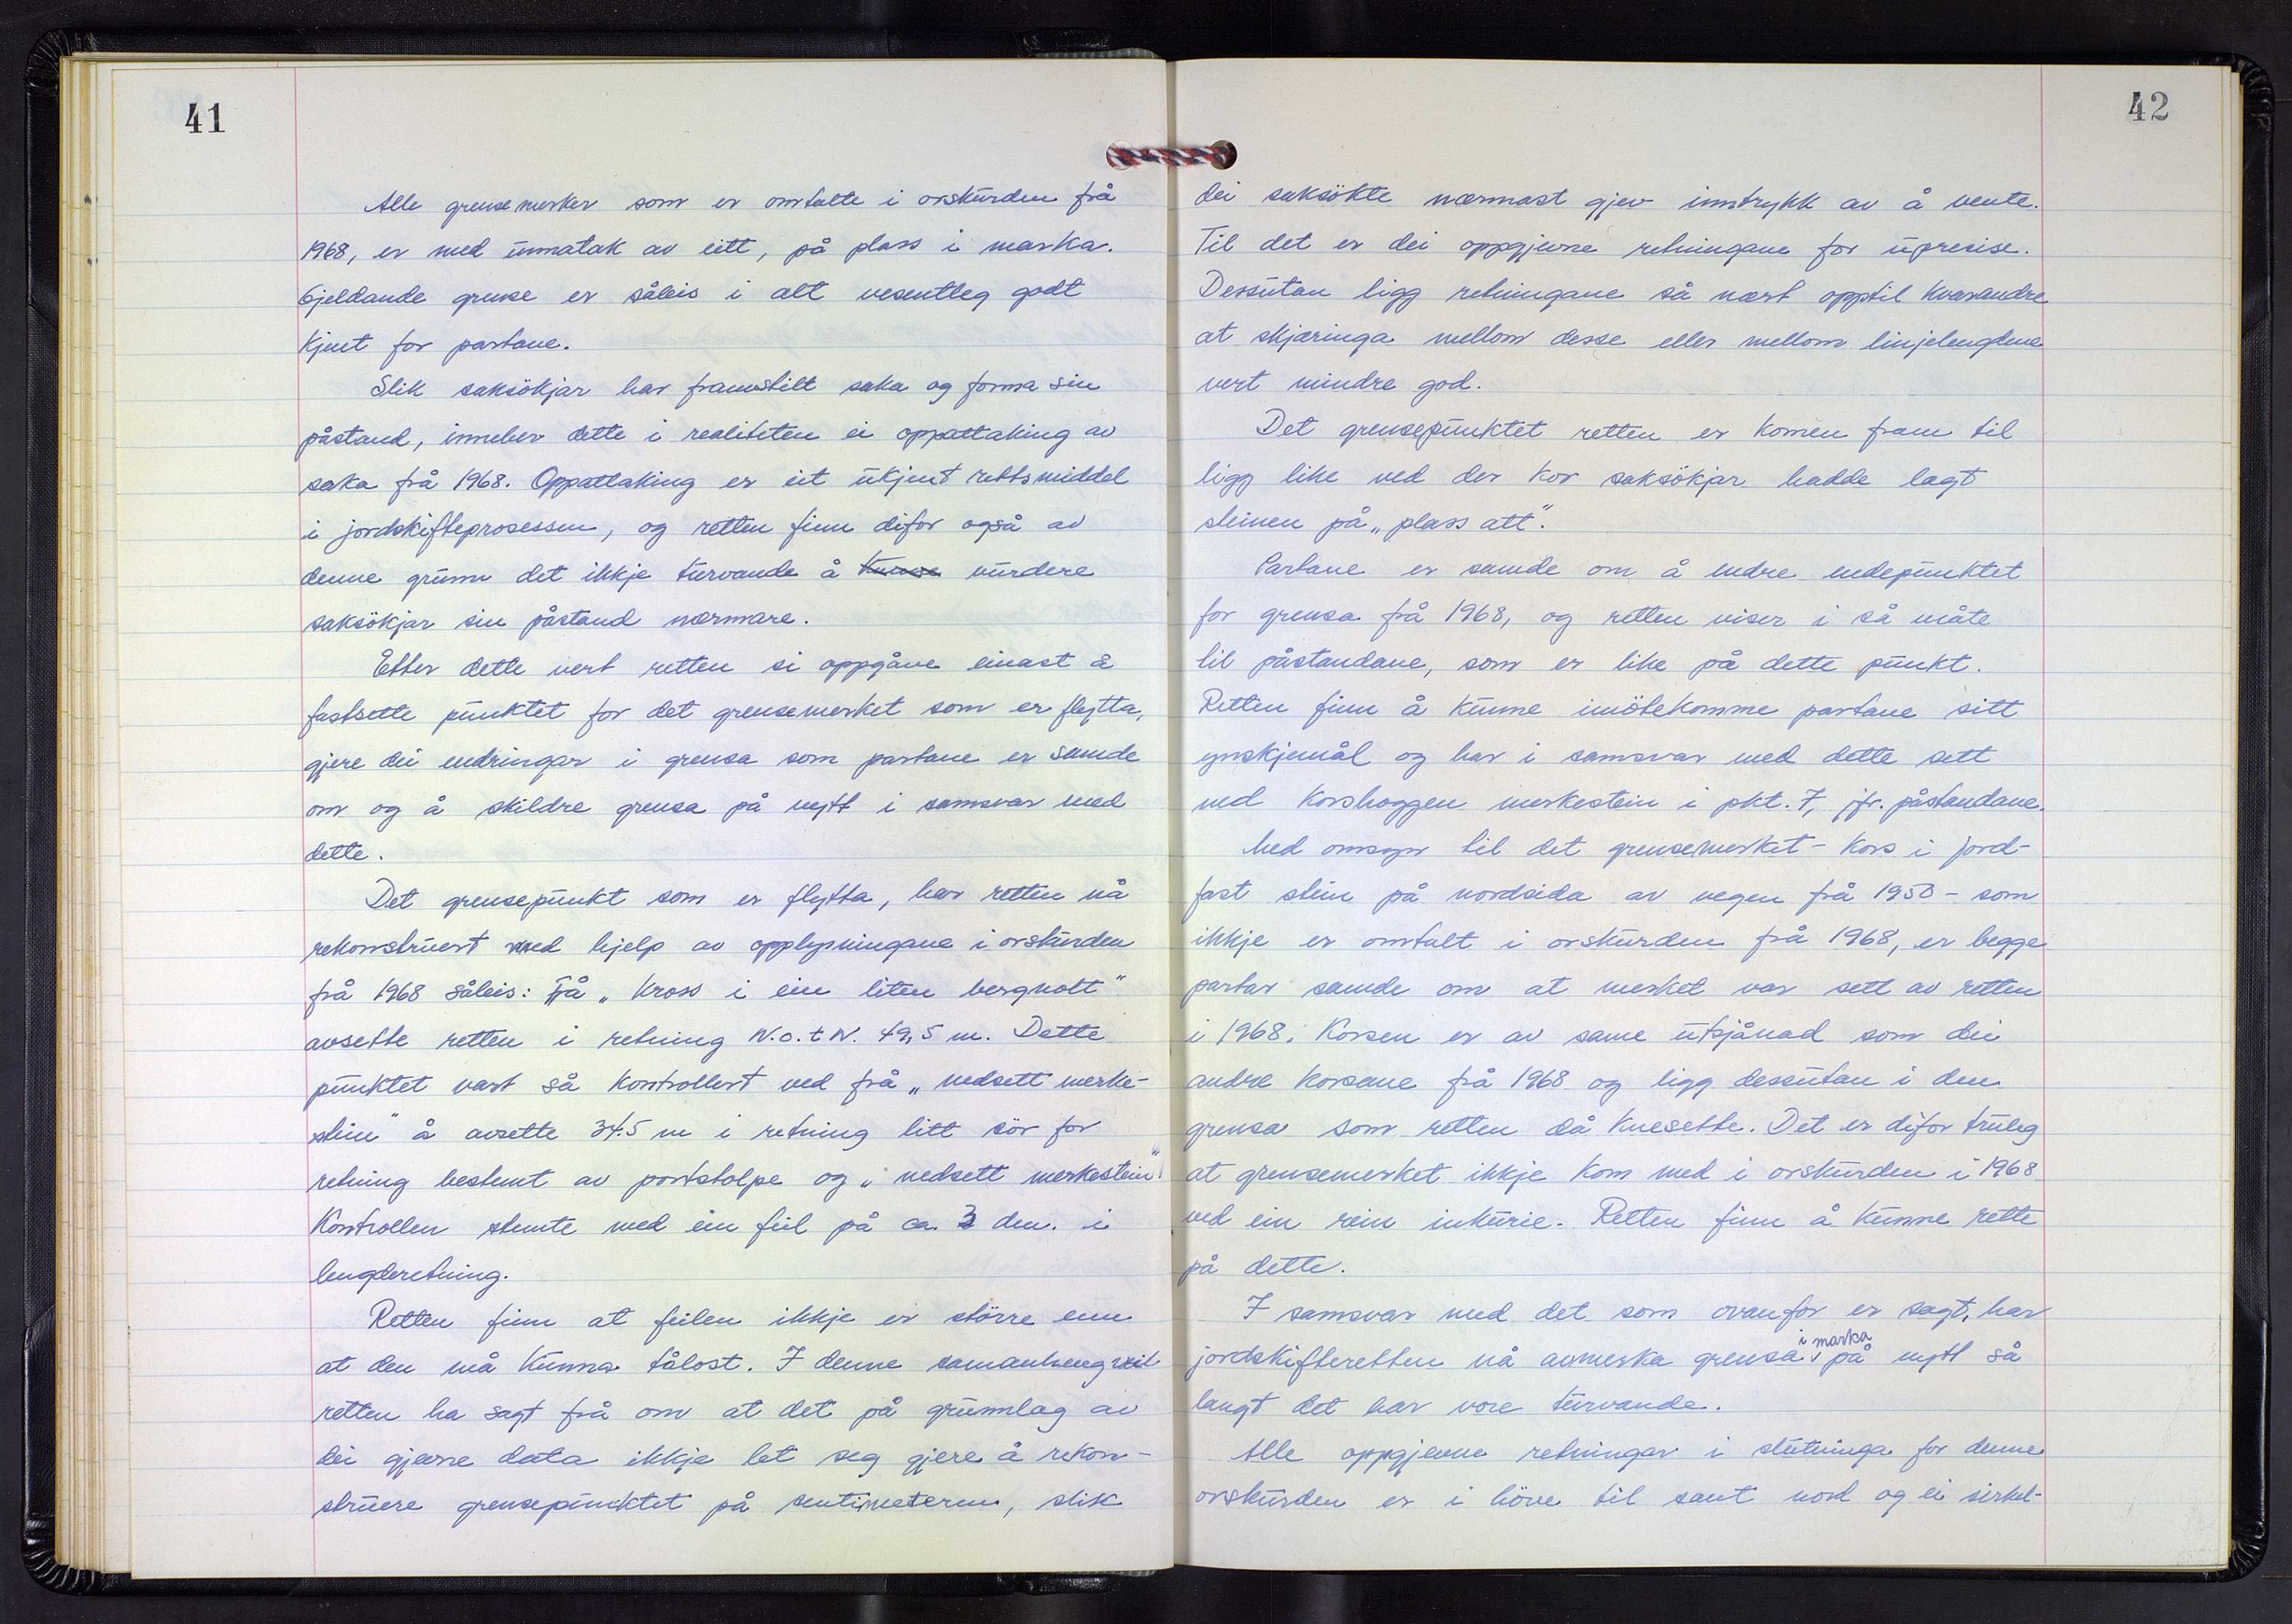 41
Alle grensemerker som er omtalte i orskurden frå
1968, er med unnatak av eitt, på plass i marka.
Gjeldande grense er såleis i alt vesentleg godt
kjent for partane.
Slik saksökjar har framstilt saka og forma sin
påstand, inneber dette i realiteten ei oppattaking av
saka frå 1968. Oppattaking er eit ukjent rettsmiddel
i jordskifteprosessen, og retten finn difor også av
denne grunn det ikkje turvande å kunne vurdere
saksökjar sin påstand nærmare.
Etter dette vert retten si oppgåve einast å
fastsette punktet for det grensemerket som er flytta,
gjere dei endringar i grensa som partane er samde
om og å skildre grensa på nytt i samsvar med
dette.
Det grensepunkt som er flytta, har retten nå
rekonstruert med hjelp av opplysningane i orskurden
frå 1968 såleis: Frå „Kross i ein liten bergnott"
avsette retten i retning N.O.t N. 49,5 m. Dette
punktet vart så kontrollert ved frå „nedsett merke-
stein" å avsette 34.5 m i retning litt sör for
retning bestemt av portstolpe og „nedsett merkestein"
Kontrollen stemte med ein feil på ca. 3 dm. i
lengderetning.
Retten finn at feilen ikkje er större enn
at den må kunna tålost. I denne samanheng vil
retten ha sagt frå om at det på grunnlag av
dei gjevne data ikkje let seg gjere å rekon-
struere grensepunktet på sentimeteren, slik
42
dei saksökte nærmast gjev inntrykk av å vente.
Til det er dei oppgjevne retningane for upresise.
Dessutan ligg retningane så nært opptil kvarandre
at skjæringa mellom desse eller mellom linjelengdene
vert mindre god.
Det grensepunktet retten er komen fram til
ligg like ved der kor saksökjar hadde lagt
steinen på „plass att".
Partane er samde om å endre endepunktet
for grensa frå 1968, og retten viser i så måte
til påstandane, som er like på dette punkt.
Retten finn å kunne imötekomme partane sitt
ynskjemål og har i samsvar med dette sett
ned korshoggen merkestein i pkt. 7, jfr. påstandane.
Med omsyn til det grensemerket - kors i jord-
fast stein på nordsida av vegen frå 1950 - som
ikkje er omtalt i orskurden frå 1968, er begge
partar samde om at merket var sett av retten
i 1968. Korsen er av same utsjånad som dei
andre korsene frå 1968 og ligg dessutan i den
grensa som retten då knesette. Det er difor truleg
at grensemerket ikkje kom med i orskurden i 1968
ved ein rein inkurie. Retten finn å kunne rette
på dette.
I samsvar med det som ovanfor er sagt, har
jordskifteretten nå avmerka grensa i marka på nytt så
langt det har vore turvande.
Alle oppgjevne retningar i slutninga for denne
orskurden er i höve til sant nord og ei sirkel-